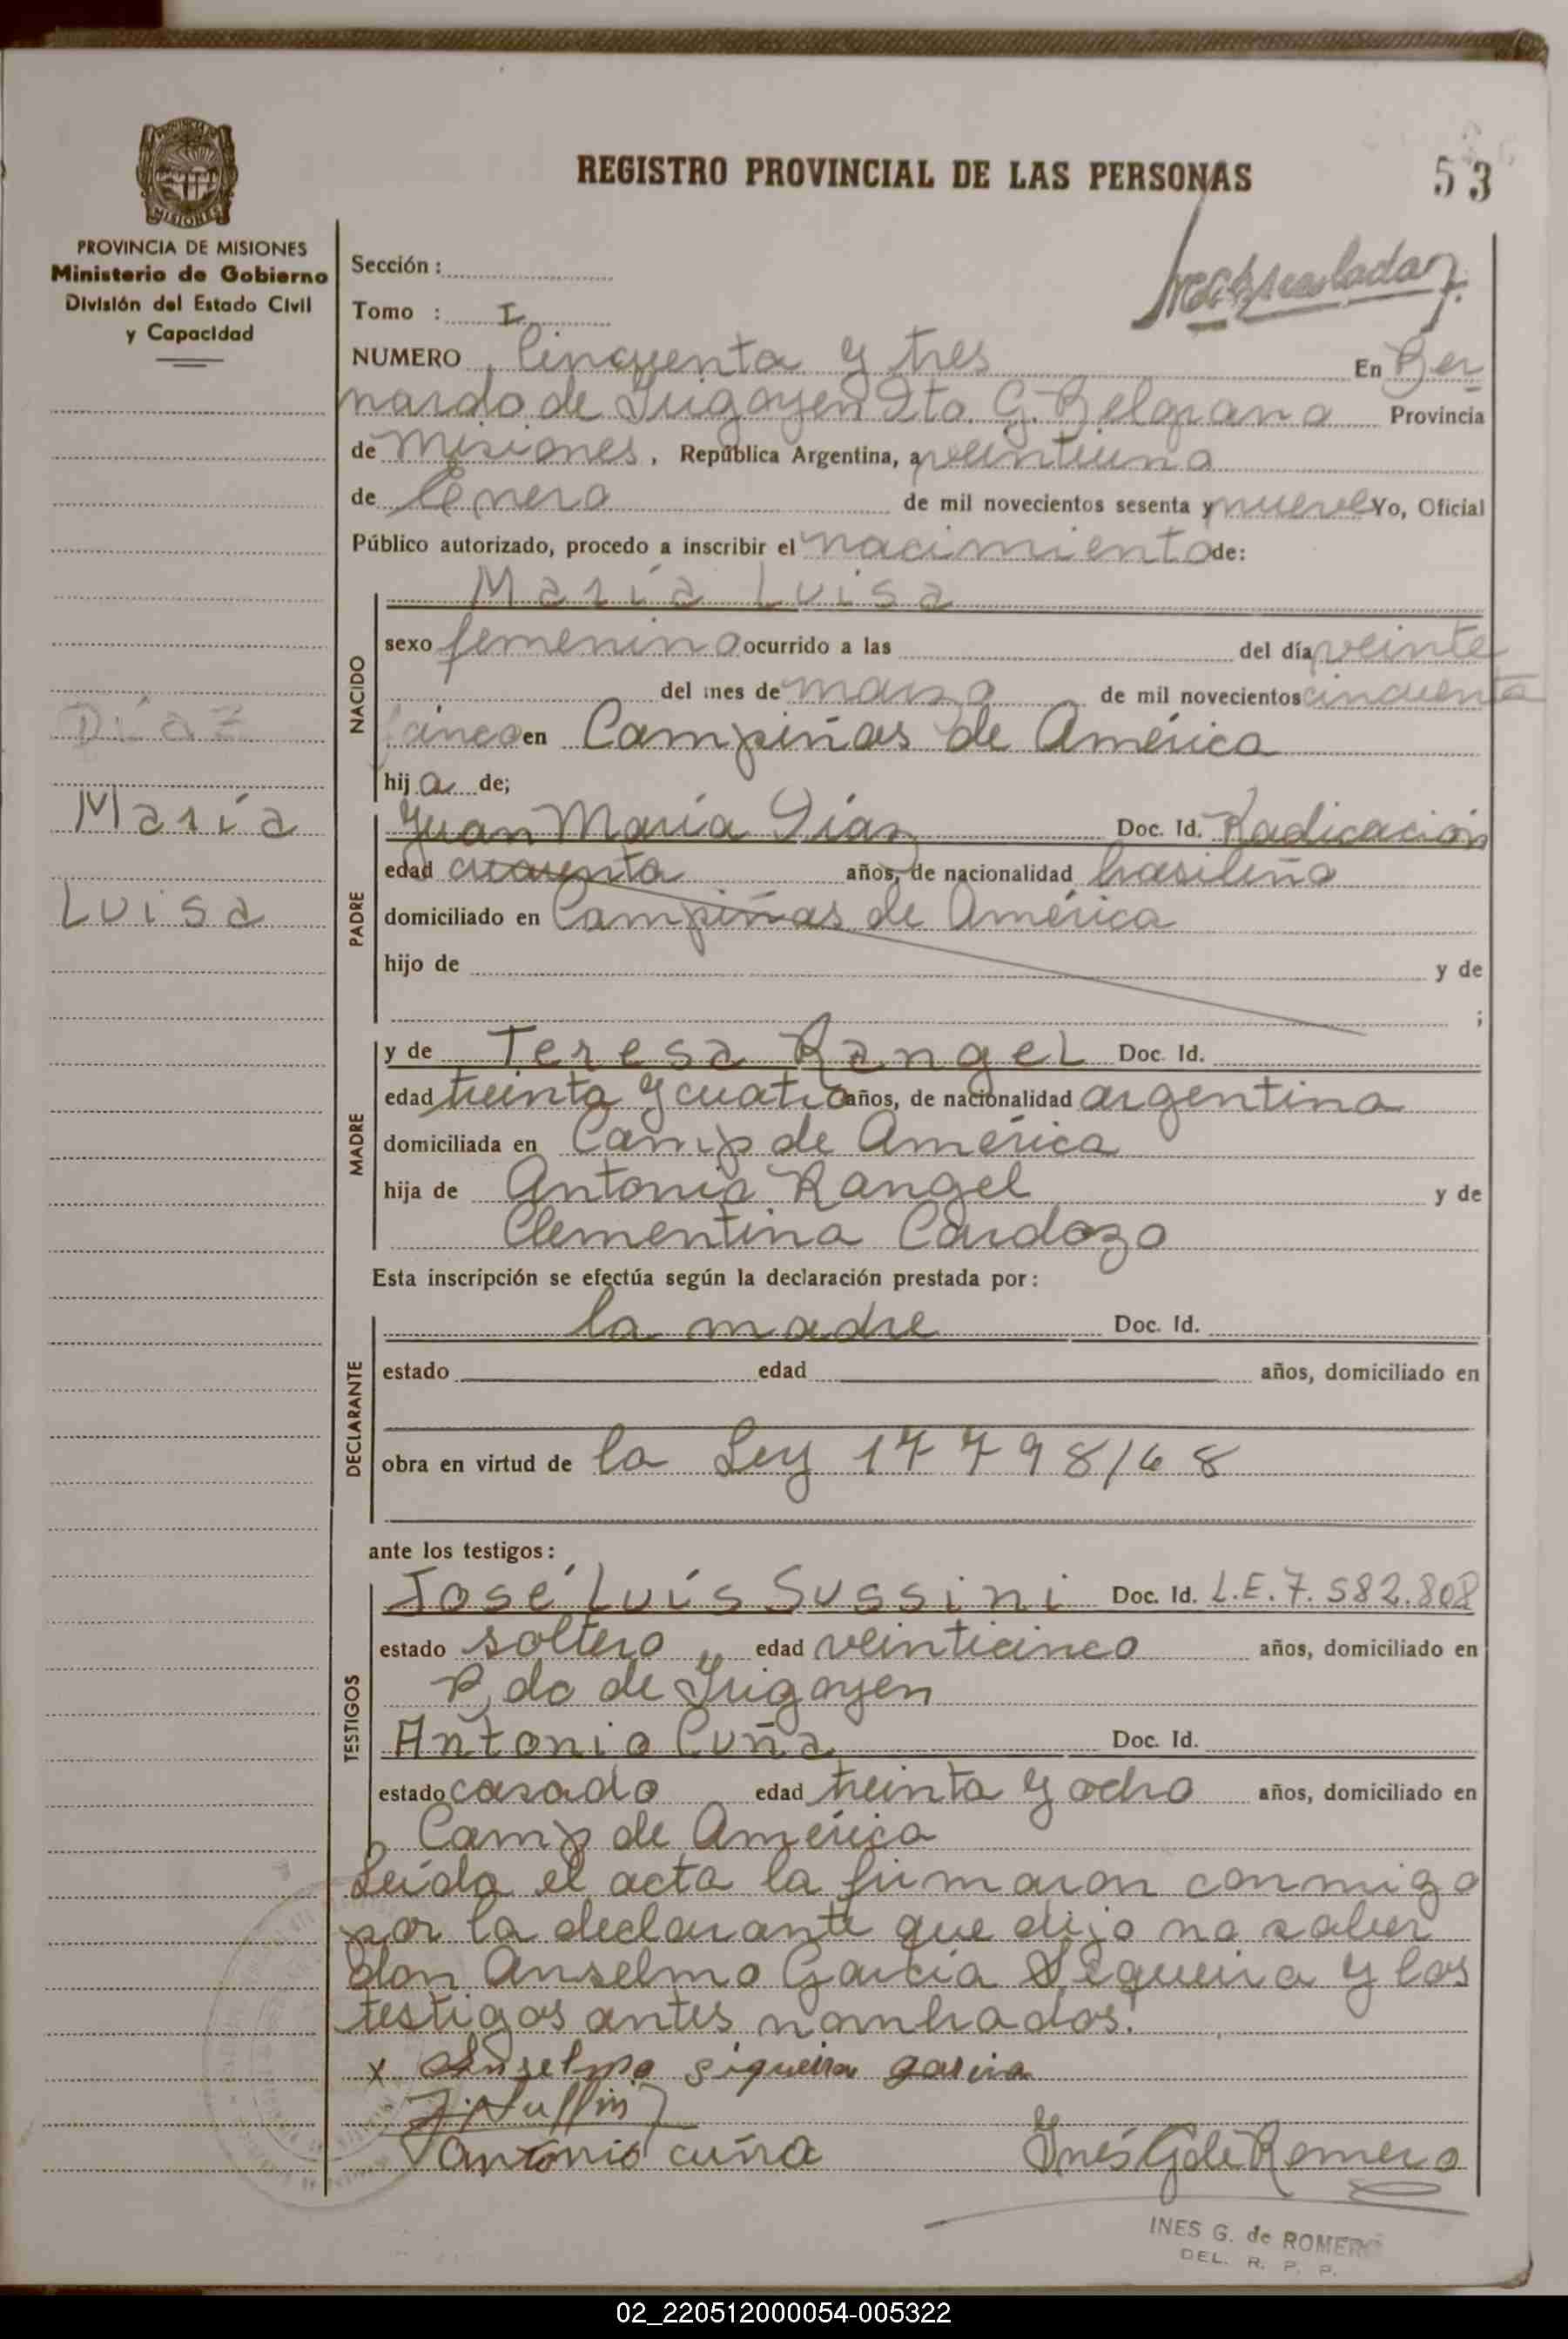 REGISTRO PROVINCIAL DE LAS PERSONAS
53
PROVINCIA DE MISIONES
Ministerio de Gobierno
División del Estado Civil
y Capacidad
Sección :
Tomo : I
NUMERO Cincuenta y tres En Ber
nardo de Irigoyen Dto. G. Belgrano Provincia
de Misiones, República Argentina, a veintiuno
de Enero de mil novecientos sesenta y nueve Yo, Oficial
Público autorizado, procedo a inscribir el nacimiento de:
María Luisa
NACIDO
sexo femenino ocurrido a las del día veinte
del mes de marzo de mil novecientos cincuenta
cinco en Campiñas de América
hija de;
Díaz
María
Luisa
PADRE
Juan María Díaz Doc. Id. Radicación
edad cuarenta años, de nacionalidad brasileña
domiciliado en Campiñas de América
hijo de y de
;
MADRE
y de Teresa Rangel Doc. Id.
edad treinta y cuatro años, de nacionalidad argentina
domiciliada en Camp de América
hija de Antonio Rangel y de
Clementina Cardozo
Esta inscripción se efectúa según la declaración prestada por :
DECLARANTE
la madre Doc. Id.
estado edad años, domiciliado en
obra en virtud de la Ley 17798/68
ante los testigos :
TESTIGOS
José Luís Sussini Doc. Id. L.E. 7.582.808
estado soltero edad veinticinco años, domiciliado en
B, do de Irigoyen
Antonio Cuña Doc. Id.
estado casado edad treinta y ocho años, domiciliado en
Camp de América
Leída el acta la firmaron conmigo
por la declarante que dijo no saber
don Anselmo García Siqueira y los
testigos antes nombrados.
x Anselmo siqueira garcia
Antonio cuña Inés G de Romero
INES G. de ROMERO
DEL. R. P. P.
02_220512000054-005322